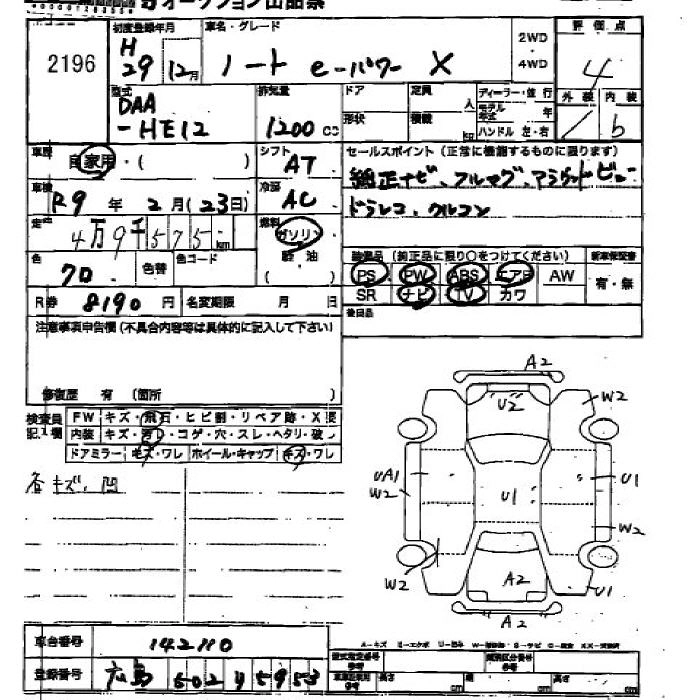 オークション出品票
2196
初度登録年月
H
29 12月
車名・グレード
ノート e-パワー X
2WD
・
4WD
評価点
4
外装 内装
b
型式
DAA
-HE12
排気量
1200 cc
ドア 定員 人
形状 積載 kg
ディーラー・並行
モデル年式 年
ハンドル 左・右
車歴
自家用・( )
シフト
AT
セールスポイント (正常に機能するものに限ります)
純正ナビ、フルセグ、アラウンドビュー
ドラレコ、クルコン
車検
R9 年 2 月 (23日)
冷房
AC
走行
4万9千575 km
燃料
ガソリン
軽油
( )
色
クロ
色替
色コード
装備品 (純正品に限り○をつけてください)
PS PW ABS エアB AW
SR ナビ TV カワ
新車保証書
有・無
R券 8190 円
名変期限 月 日
後日品
注意事項申告欄 (不具合内容等は具体的に記入して下さい)
修復歴 有 (箇所 )
検査員記入欄
FW キズ・飛石・ヒビ割・リペア跡・X要
内装 キズ・汚れ・コゲ・穴・スレ・ヘタリ・破レ
ドアミラー キズ・ワレ ホイール・キャップ キズ・ワレ
各キズ、凹
A2
U2
W2
UA1
W2
U1
U1
W2
W2
A2
U1
A2
車台番号
142110
登録番号
広島 502 5953
型式指定番号
類別区分番号
長さ cm 幅 cm 高さ cm